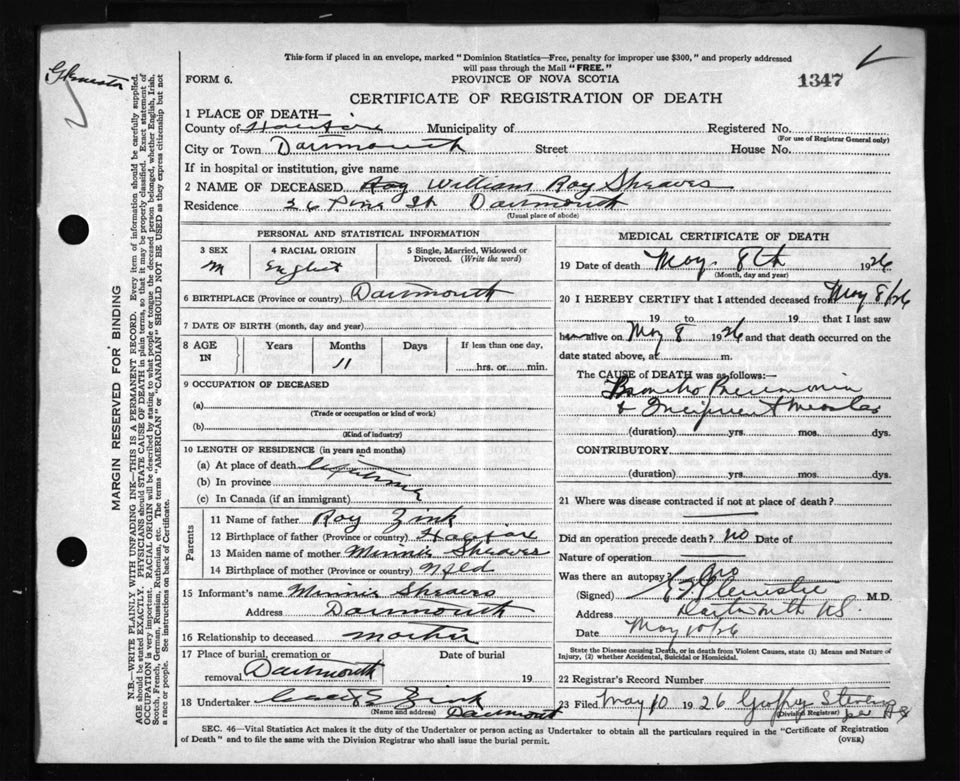 This form if placed in an envelope, marked "Dominion Statistics—Free, penalty for improper use $300," and properly addressed
will pass through the Mail "FREE."
FORM 6.
PROVINCE OF NOVA SCOTIA
1347
CERTIFICATE OF REGISTRATION OF DEATH
MARGIN RESERVED FOR BINDING
N.B.—WRITE PLAINLY WITH UNFADING INK—THIS IS A PERMANENT RECORD. Every item of information should be carefully supplied.
AGE should be stated EXACTLY. PHYSICIANS should STATE CAUSE OF DEATH in plain terms, so that it may be properly classified. Exact statement of
OCCUPATION is very important. RACIAL ORIGIN will be described by stating to what people or tongue the deceased person belonged, whether English, Irish,
Scotch, French, German, Russian, Ruthenian, etc. The terms "AMERICAN" or "CANADIAN" SHOULD NOT BE USED as they express citizenship but not
a race or people. See instructions on back of Certificate.
1 PLACE OF DEATH—
County of Halifax Municipality of Registered No.
(For use of Registrar General only)
City or Town Dartmouth Street House No.
If in hospital or institution, give name
2 NAME OF DECEASED Roy William Roy Sheaves
Residence 26 Pine St Dartmouth
(Usual place of abode)
PERSONAL AND STATISTICAL INFORMATION
3 SEX 4 RACIAL ORIGIN 5 Single, Married, Widowed or
Divorced. (Write the word)
M English
6 BIRTHPLACE (Province or country) Dartmouth
7 DATE OF BIRTH (month, day and year)
8 AGE IN Years Months Days If less than one day,
11 hrs. or min.
9 OCCUPATION OF DECEASED
(a)
(Trade or occupation or kind of work)
(b)
(Kind of industry)
10 LENGTH OF RESIDENCE (in years and months)
(a) At place of death Lifetime
(b) In province
(c) In Canada (if an immigrant)
Parents
11 Name of father Roy Zink
12 Birthplace of father (Province or country) Halifax
13 Maiden name of mother Minnie Sheaves
14 Birthplace of mother (Province or country) Nfld
15 Informant's name Minnie Sheaves
Address Dartmouth
16 Relationship to deceased mother
17 Place of burial, cremation or Date of burial
removal Dartmouth 19
18 Undertaker Zink
(Name and address) Dartmouth
MEDICAL CERTIFICATE OF DEATH
19 Date of death May 8th 1926
(Month, day and year)
20 I HEREBY CERTIFY that I attended deceased from May 8/26
19 to 19 that I last saw
h alive on May 8 1926 and that death occurred on the
date stated above, at m.
The CAUSE of DEATH was as follows:—
Broncho Pneumonia
& Incipient Measles
(duration) yrs. mos. dys.
CONTRIBUTORY
(duration) yrs. mos. dys.
21 Where was disease contracted if not at place of death?
Did an operation precede death? no Date of
Nature of operation
Was there an autopsy? No
(Signed) M.D.
Address Dartmouth NS
Date May 10/26
State the Disease causing Death, or in death from Violent Causes, state (1) Means and Nature of
Injury, (2) whether Accidental, Suicidal or Homicidal.
22 Registrar's Record Number
23 Filed May 10 1926 Stevens
(Division Registrar)
SEC. 46—Vital Statistics Act makes it the duty of the Undertaker or person acting as Undertaker to obtain all the particulars required in the "Certificate of Registration
of Death" and to file the same with the Division Registrar who shall issue the burial permit.
(OVER)